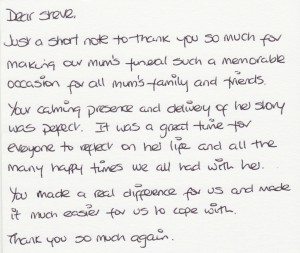 Dear Steve,
Just a short note to thank you so much for
making our mum's funeral such a memorable
occasion for all mum's family and friends.
Your calming presence and delivery of her story
was perfect. It was a great time for
everyone to reflect on her life and all the
many happy times we all had with her.
You made a real difference for us and made
it much easier for us to cope with.
Thank you so much again.